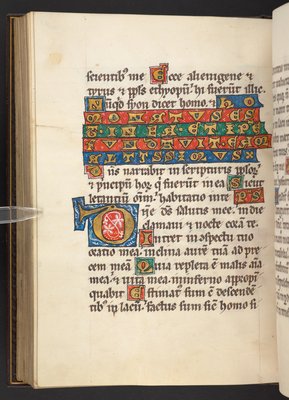 scientib; me Ecce alienigene &
tyrus & ppłs ethyopū hi fuerūt illic.
Nūqd syon dicet homo. & HO
MO NATUS ES
T IN EA ET IP̄E F
UNDAVIT EAM
ALTISSIMUS
Dñs narrabit in scripturis pplor;
& pncipū hoꝝ q fuerūt in ea Sicut
letantiū oīm habitatio in te PS
Dñe ds salutis mee in die
clamaui & nocte corā te.
Intret in ɔspectu tuo
oratio mea inclina aurē tuā ad pre
cem meā Quia repleta ē malis aīa
mea & uita mea in inferno appropī
quabit Estimat sum cū descendē
tib; in lacū factus sum sic̄ homo si